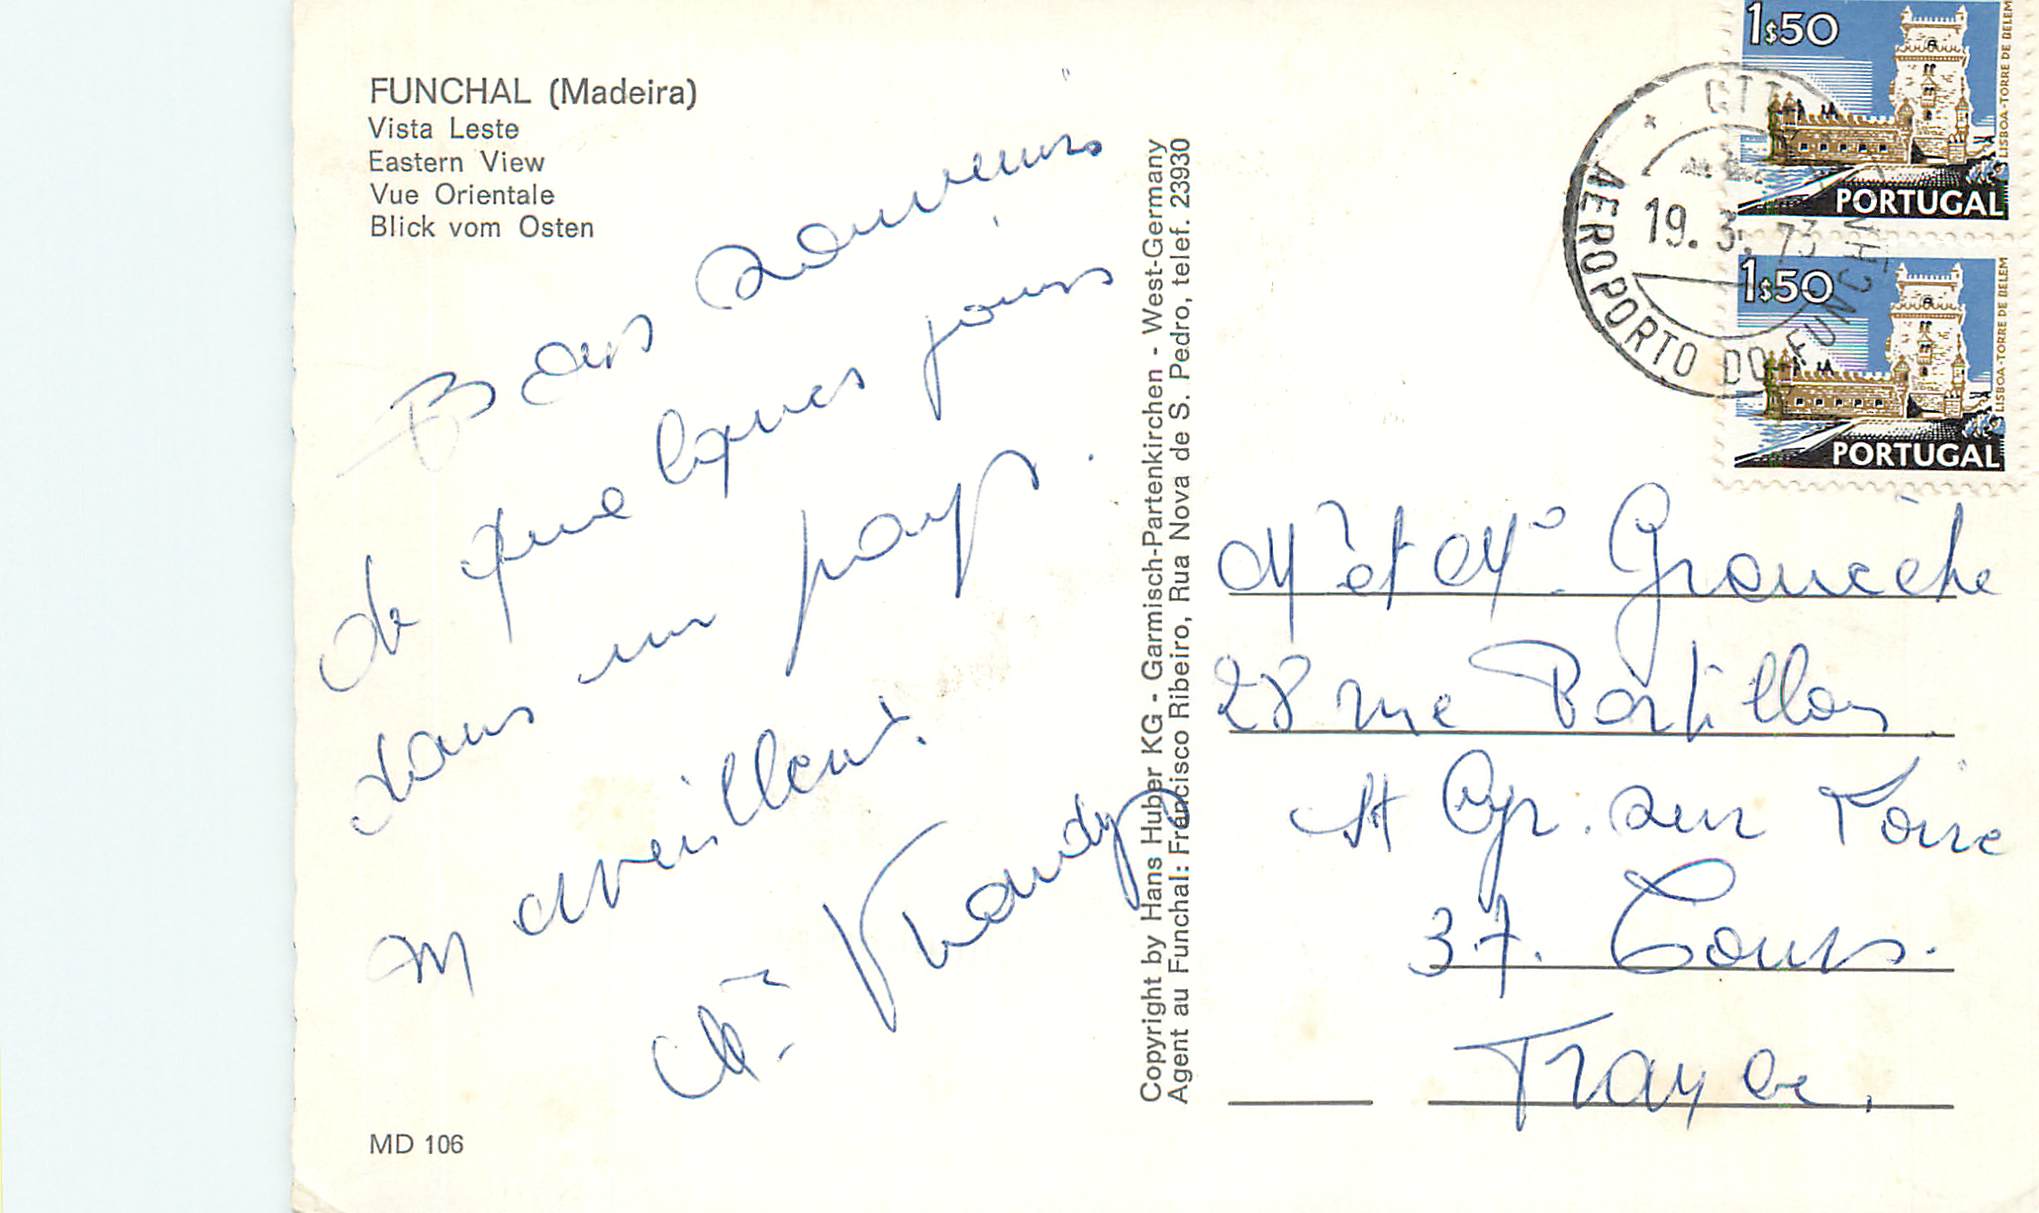 FUNCHAL (Madeira)
Vista Leste
Eastern View
Vue Orientale
Blick vom Osten
Bons souvenirs
de quelques jours
dans un pays
merveilleux.
MD 106
Copyright by Hans Huber KG - Garmisch-Partenkirchen - West-Germany
Agent au Funchal: Francisco Ribeiro, Rua Nova de S. Pedro, telef. 23930
1$50
LISBOA-TORRE DE BELEM
PORTUGAL
1$50
LISBOA-TORRE DE BELEM
PORTUGAL
CTT
19. 3. 73
AEROPORTO DO FUNCHAL
Mr et Me
28 rue Portillon
St Cyr. sur Loire
37. Tours.
France.